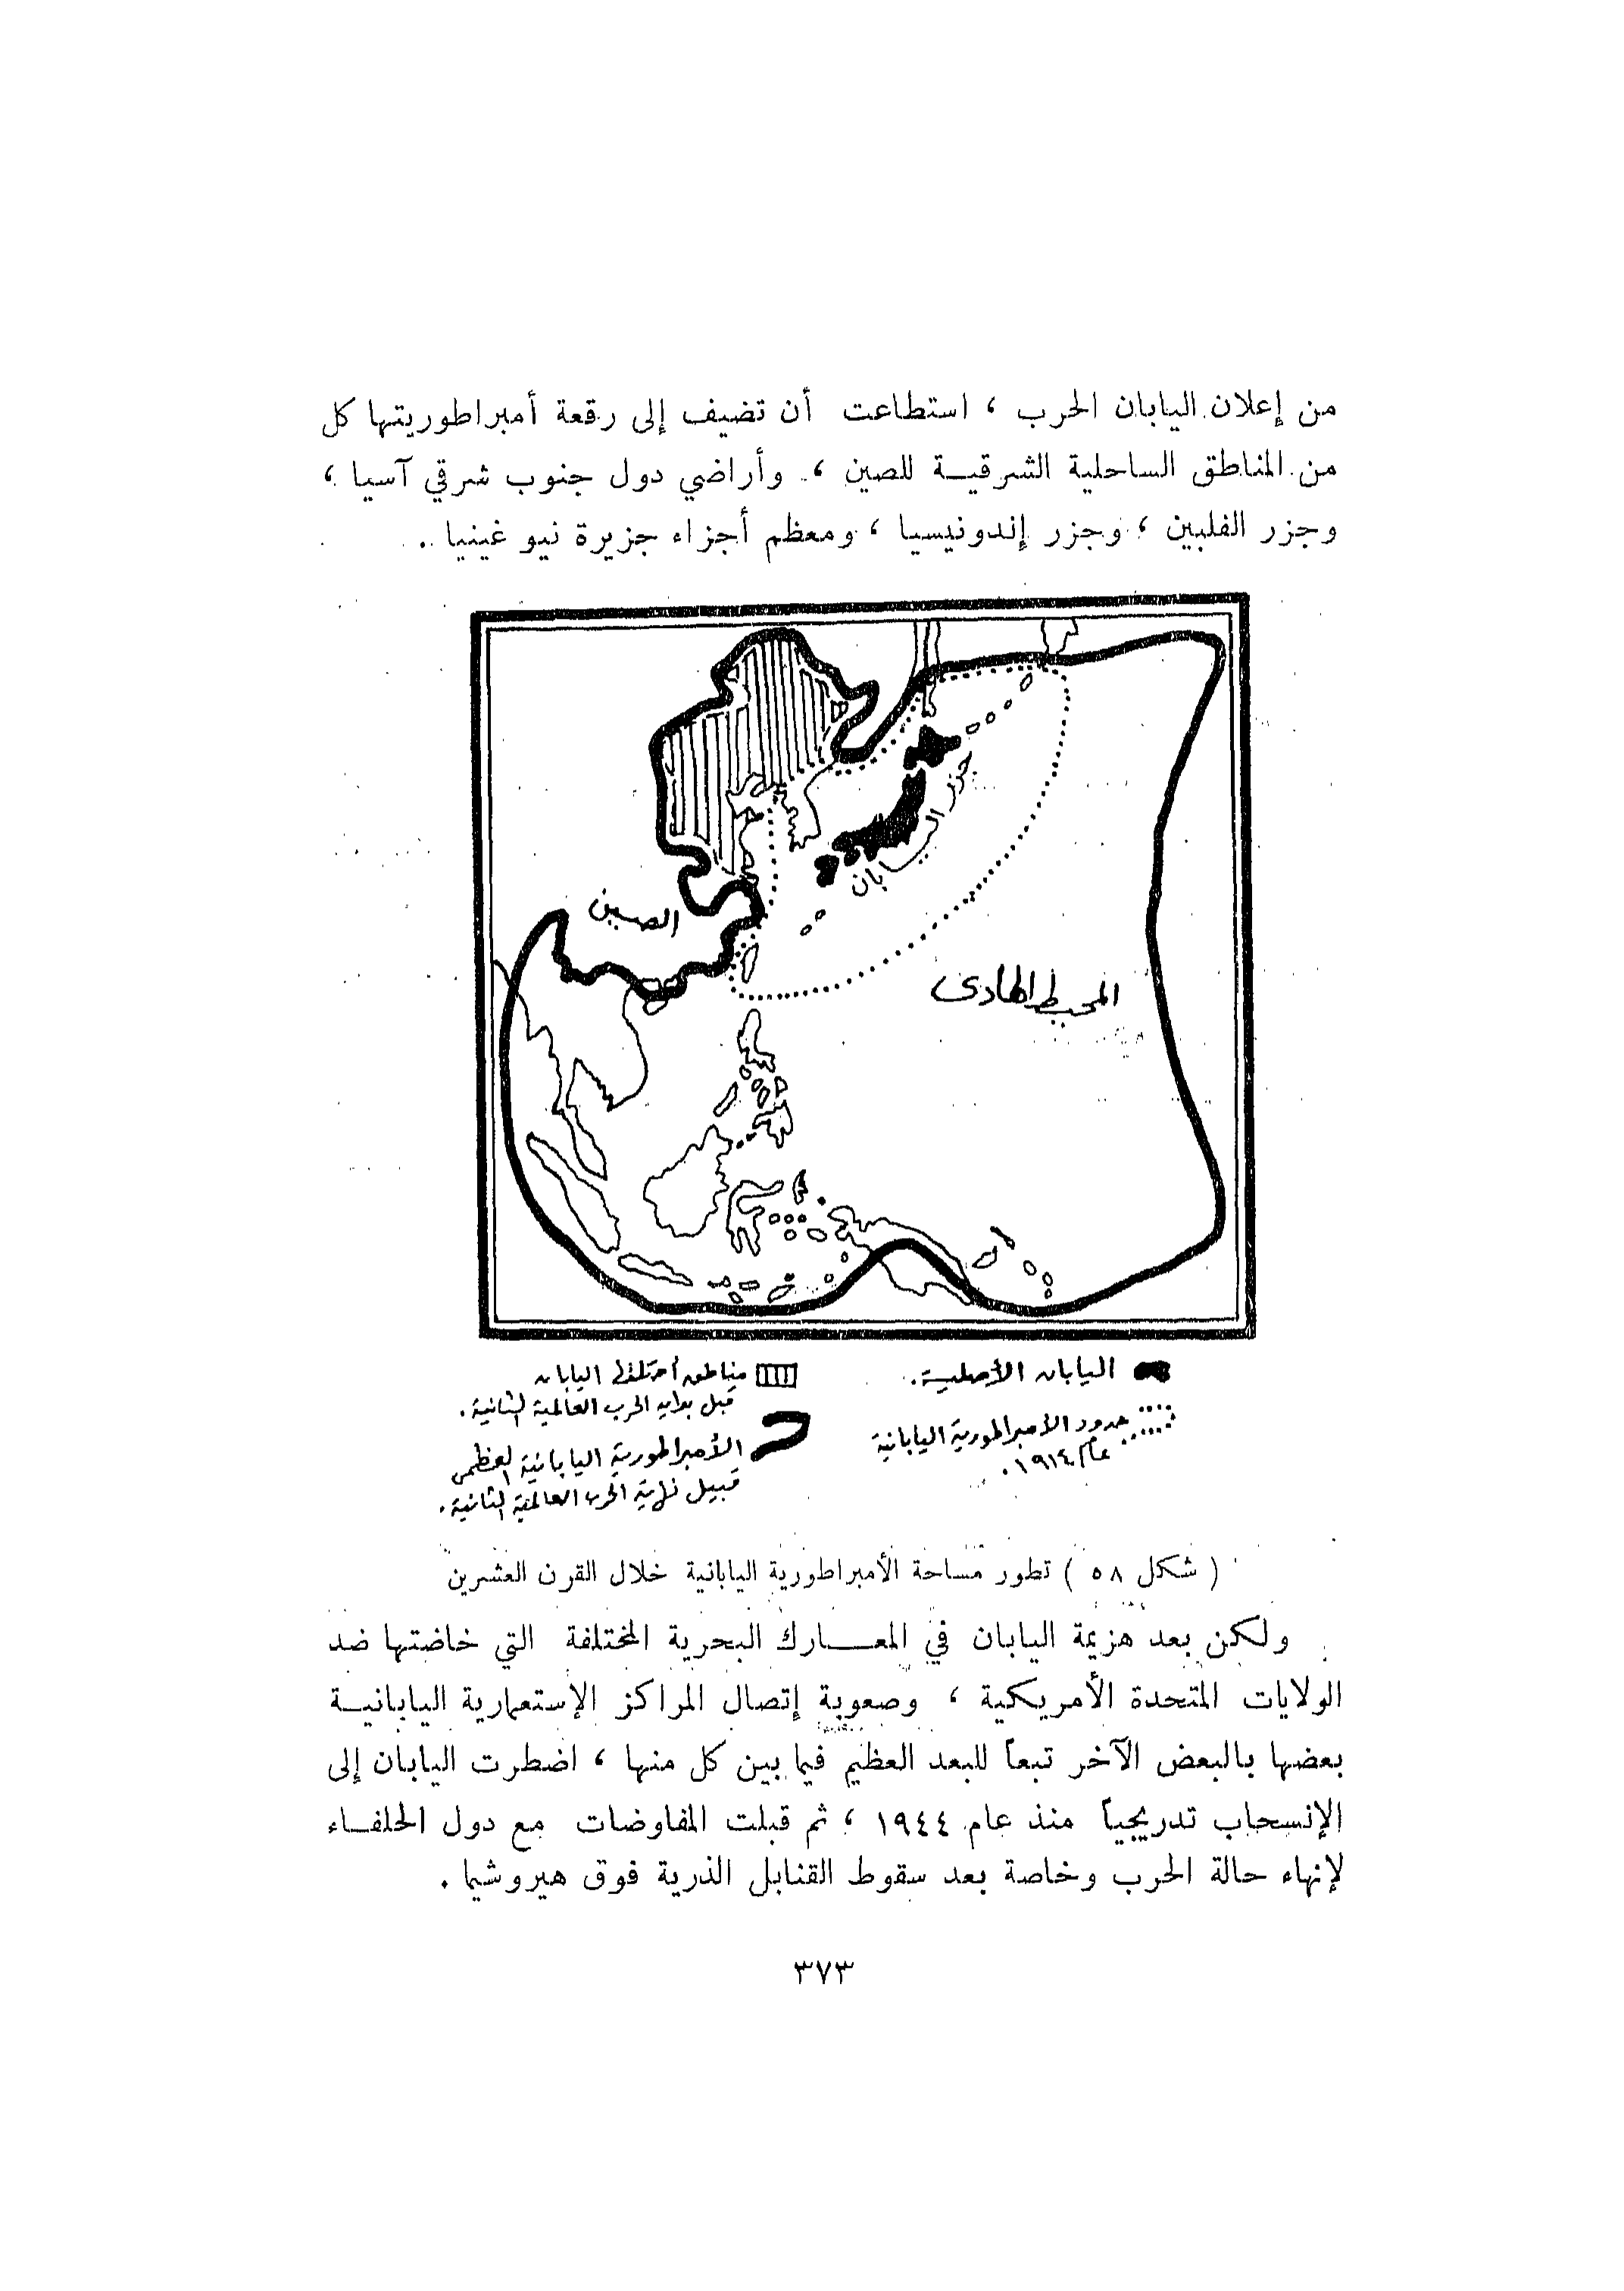 من إعلان اليابان الحرب ، استطاعت أن تضيف إلى رقعة أمبراطوريتها كل
من المناطق الساحلية الشرقيــة للصين ، وأراضي دول جنوب شرقي آسيا ،
وجزر الفلبين ، وجزر إندونيسيا ، ومعظم أجزاء جزيرة نيو غينيا .
جزر اليابان
الصين
المحيط الهادى
اليابان الأصلية .
حدود الأمبراطورية اليابانية
عام ١٩١٤ .
مناطق أحتلها اليابان
قبل بداية الحرب العالمية الثانية .
الأمبراطورية اليابانية العظمى
قبيل نهاية الحرب العالمية الثانية .
( شكل ٥٨ ) تطور مساحة الأمبراطورية اليابانية خلال القرن العشرين
ولكن بعد هزيمة اليابان في المعـــارك البحرية المختلفة التي خاضتها ضد
الولايات المتحدة الأمريكية ، وصعوبة إتصال المراكز الإستعمارية اليابانيــة
بعضها بالبعض الآخر تبعاً للبعد العظيم فيما بين كل منها ، اضطرت اليابان إلى
الإنسحاب تدريجياً منذ عام ١٩٤٤ ، ثم قبلت المفاوضات مع دول الحلفــاء
لإنهاء حالة الحرب وخاصة بعد سقوط القنابل الذرية فوق هيروشيما .
٣٧٣